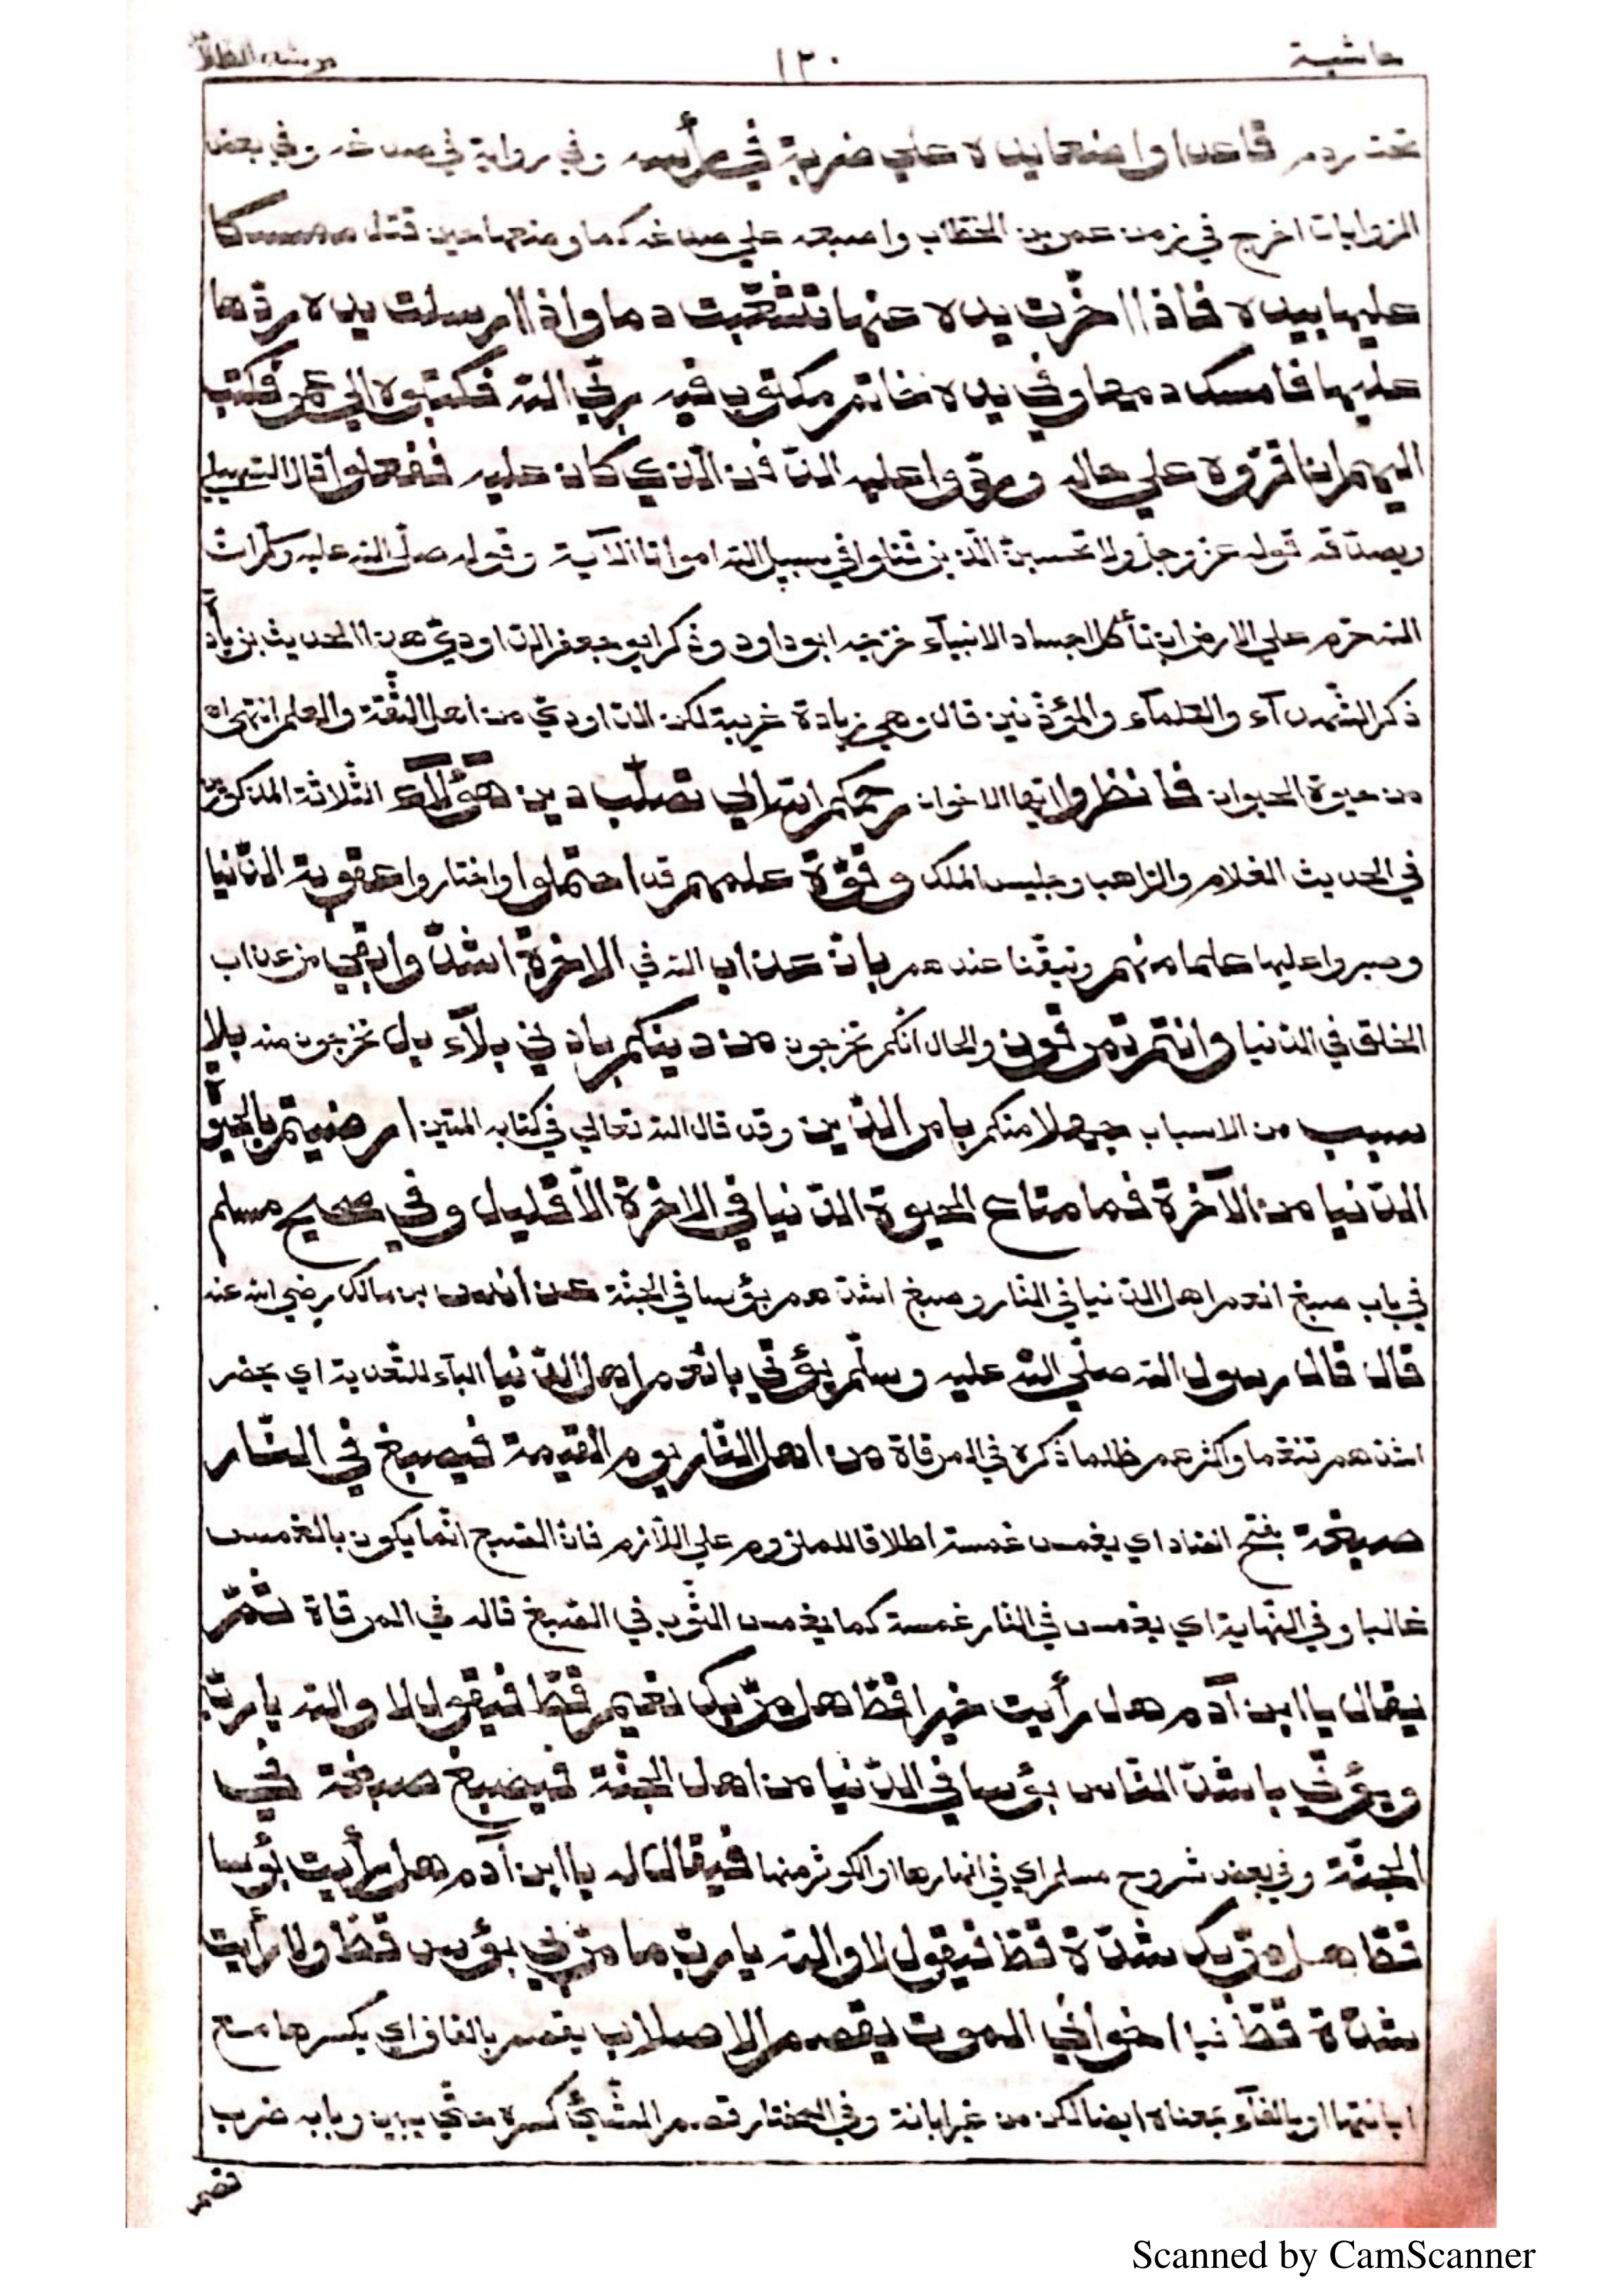 حاشية ١٣٠ مرشد الطلاب
تحت ردم قاعدا واضعا يده علي ضربة في رأسه وفي رواية في صدغه وفي بعض
الروايات اخرج في زمن عمر بن الخطاب واصبعه علي صدغه كما وضعها حين قتل ممسكا
عليها بيده فاذا اخّرت يده عنها تشعّبت دما واذا ارسلت يده ردّها
عليها فامسك دمها وفي يده خاتم مكتوب فيه ربّي الله فكتبوه الي عمر فكتب
اليهم ان اقرّوه علي حاله وردّوا عليه الدّفن الّذي كان عليه ففعلوا قال السّهيلي
ويصدّقه قوله عزّ وجلّ ولا تحسبنّ الّذين قتلوا في سبيل الله امواتا الآية وقوله صلّي الله عليه وسلّم انّ
الله حرّم علي الارض ان تأكل اجساد الانبيآء خرّجه ابو داود وذكر ابو جعفر الدّاودي هذا الحديث بزيادة
ذكر الشّهدآء والعلمآء والمؤذّنين قال وهي زيادة غريبة لكن الدّاوديّ من اهل الثّقة والعلم انتهي اه
من حيوة الحيوان فانظروا ايّها الاخوان رحمكم الله الي تصلّب دين هؤلآء الثّلاثة المذكورين
في الحديث الغلام والرّاهب وجليس الملك وقوّة علمهم قد احتملوا واختاروا عقوبة الدّنيا
وصبروا عليها علما منهم وتيقّنا عندهم بانّ عذاب الله في الاخرة اشدّ وابقي من عذاب
الخلق في الدّنيا وانتم تمرقون والحال انّكم تخرجون من دينكم بادني بلآء بل تخرجون منه بلا
سبب من الاسباب جهلا منكم بامر الدّين وقد قال الله تعالي في كتابه المتين ارضيتم بالحيوة
الدّنيا من الآخرة فما متاع الحيوة الدّنيا في الاخرة الّا قليل وفي صحيح مسلم
في باب صبغ انعم اهل الدّنيا في النّار وصبغ اشدّهم بؤسا في الجنّة عن انس بن مالك رضي الله عنه
قال قال رسول الله صلّي الله عليه وسلّم يؤتي بانعم اهل الدّنيا البآء للتّعدية اي يحضر
اشدّهم تنعّما واكثرهم ظلما ذكره في المرقاة من اهل النّار يوم القيمة فيصبغ في النّار
صبغة بفتح الصّاد اي يغمس غمسة اطلاقا للملزوم علي اللّازم فانّ الصّبغ انّما يكون بالغمس
غالبا وفي النّهاية اي يغمس في النار غمسة كما يغمس الثّوب في الصّبغ قاله في المرقاة ثمّ
يقال يا ابن آدم هل رأيت خيرا قطّ هل مرّ بك نعيم قطّ فيقول لا والله يا ربّ
ويؤتي باشدّ النّاس بؤسا في الدّنيا من اهل الجنّة فيصبغ صبغة في
الجنّة وفي بعض شروح مسلم اي في انهارها او الكوثر منها فيقال له يا ابن آدم هل رأيت بؤسا
قطّ هل مرّ بك شدّة قطّ فيقول لا والله يا ربّ ما مرّ بي بؤس قطّ ولا رأيت
شدّة قطّ فيا اخواني الموت يقصم الاصلاب يقصم بالقاف اي يكسرها مع
ابانتها او بالفآء بمعناه ايضا لكن من غير ابانة وفي المختار قصم الشّيئ كسره حتّي يبين وبابه ضرب
Scanned by CamScanner